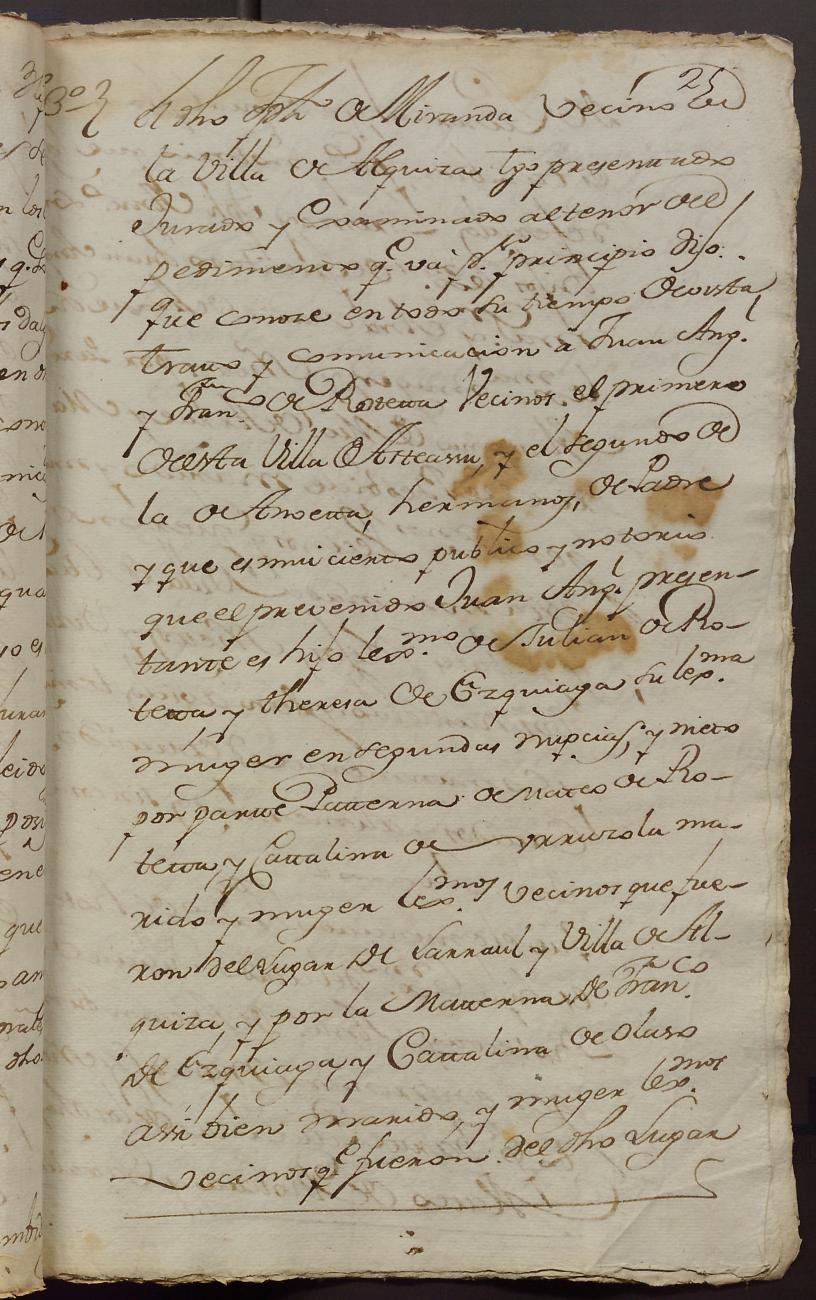 25
3º
el dho Jph de Miranda vecino de
la Villa de Alquiza tgo presentado
Jurado y Examinado al tenor del
pedimento q.e vá p.r principio dijo.
que conoze en todo su tiempo de vista
trato y comunicacion á Juan Ang.l
y Fran.co de Rotetta Vecinos. el primero
de esta Villa de Asteasu, y el segundo de
la de Anoetta, hermanos, de Padre
y que es mui cierto publico y notorio
que el prevenido Juan Ang.l presen-
tante es hijo lex.mo de Julian de Ro-
tetta y theresa de Ezquiaga su lex.ma
muger en segundas nupcias, y nieto
por parte Patterna de Matteo de Ro-
tetta, y Cattalina de Urruzola ma-
rido y muger lex.mos vecinos que fue-
ron del Lugar de Larraul y Villa de Al-
quiza, y por la Matterna de Fran.co
de Ezquiaga y Cattalina de Olaso
assi bien marido, y muger lex.mos
vecinos q.e fueron del dho Lugar